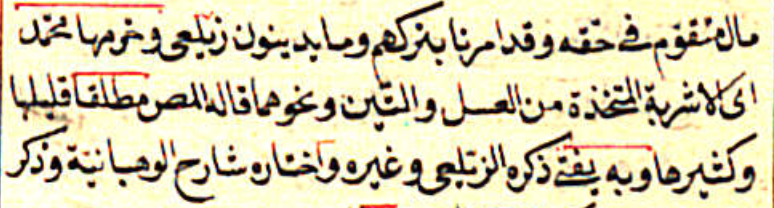 مال متقوم في حقه وقد امرنا بتركهم وما يدينون زيلعى وحرمها محمد
اى الاشربة المتخذة من العسل والتين ونحوهما قاله المص مطلقا قليلها
وكثيرها وبه يفتى ذكره الزيلعى وغيره واختاره شارح الوهبانية وذكر